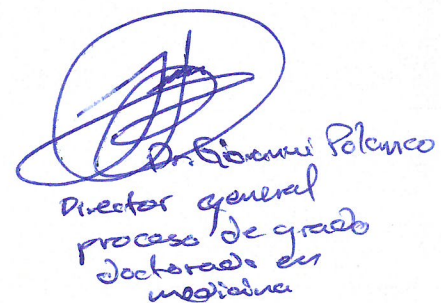 Dr. Giovanni Polanco
Director general
proceso de grado
doctorado en
medicina